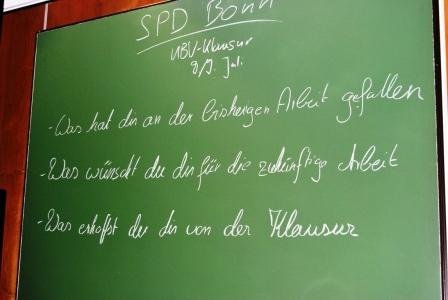 SPD Bonn
UBV-Klausur
8./9. Juli
- Was hat dir an der bisherigen Arbeit gefallen
- Was wünscht du dir für die zukünftige Arbeit
- Was erhoffst du dir von der Klausur